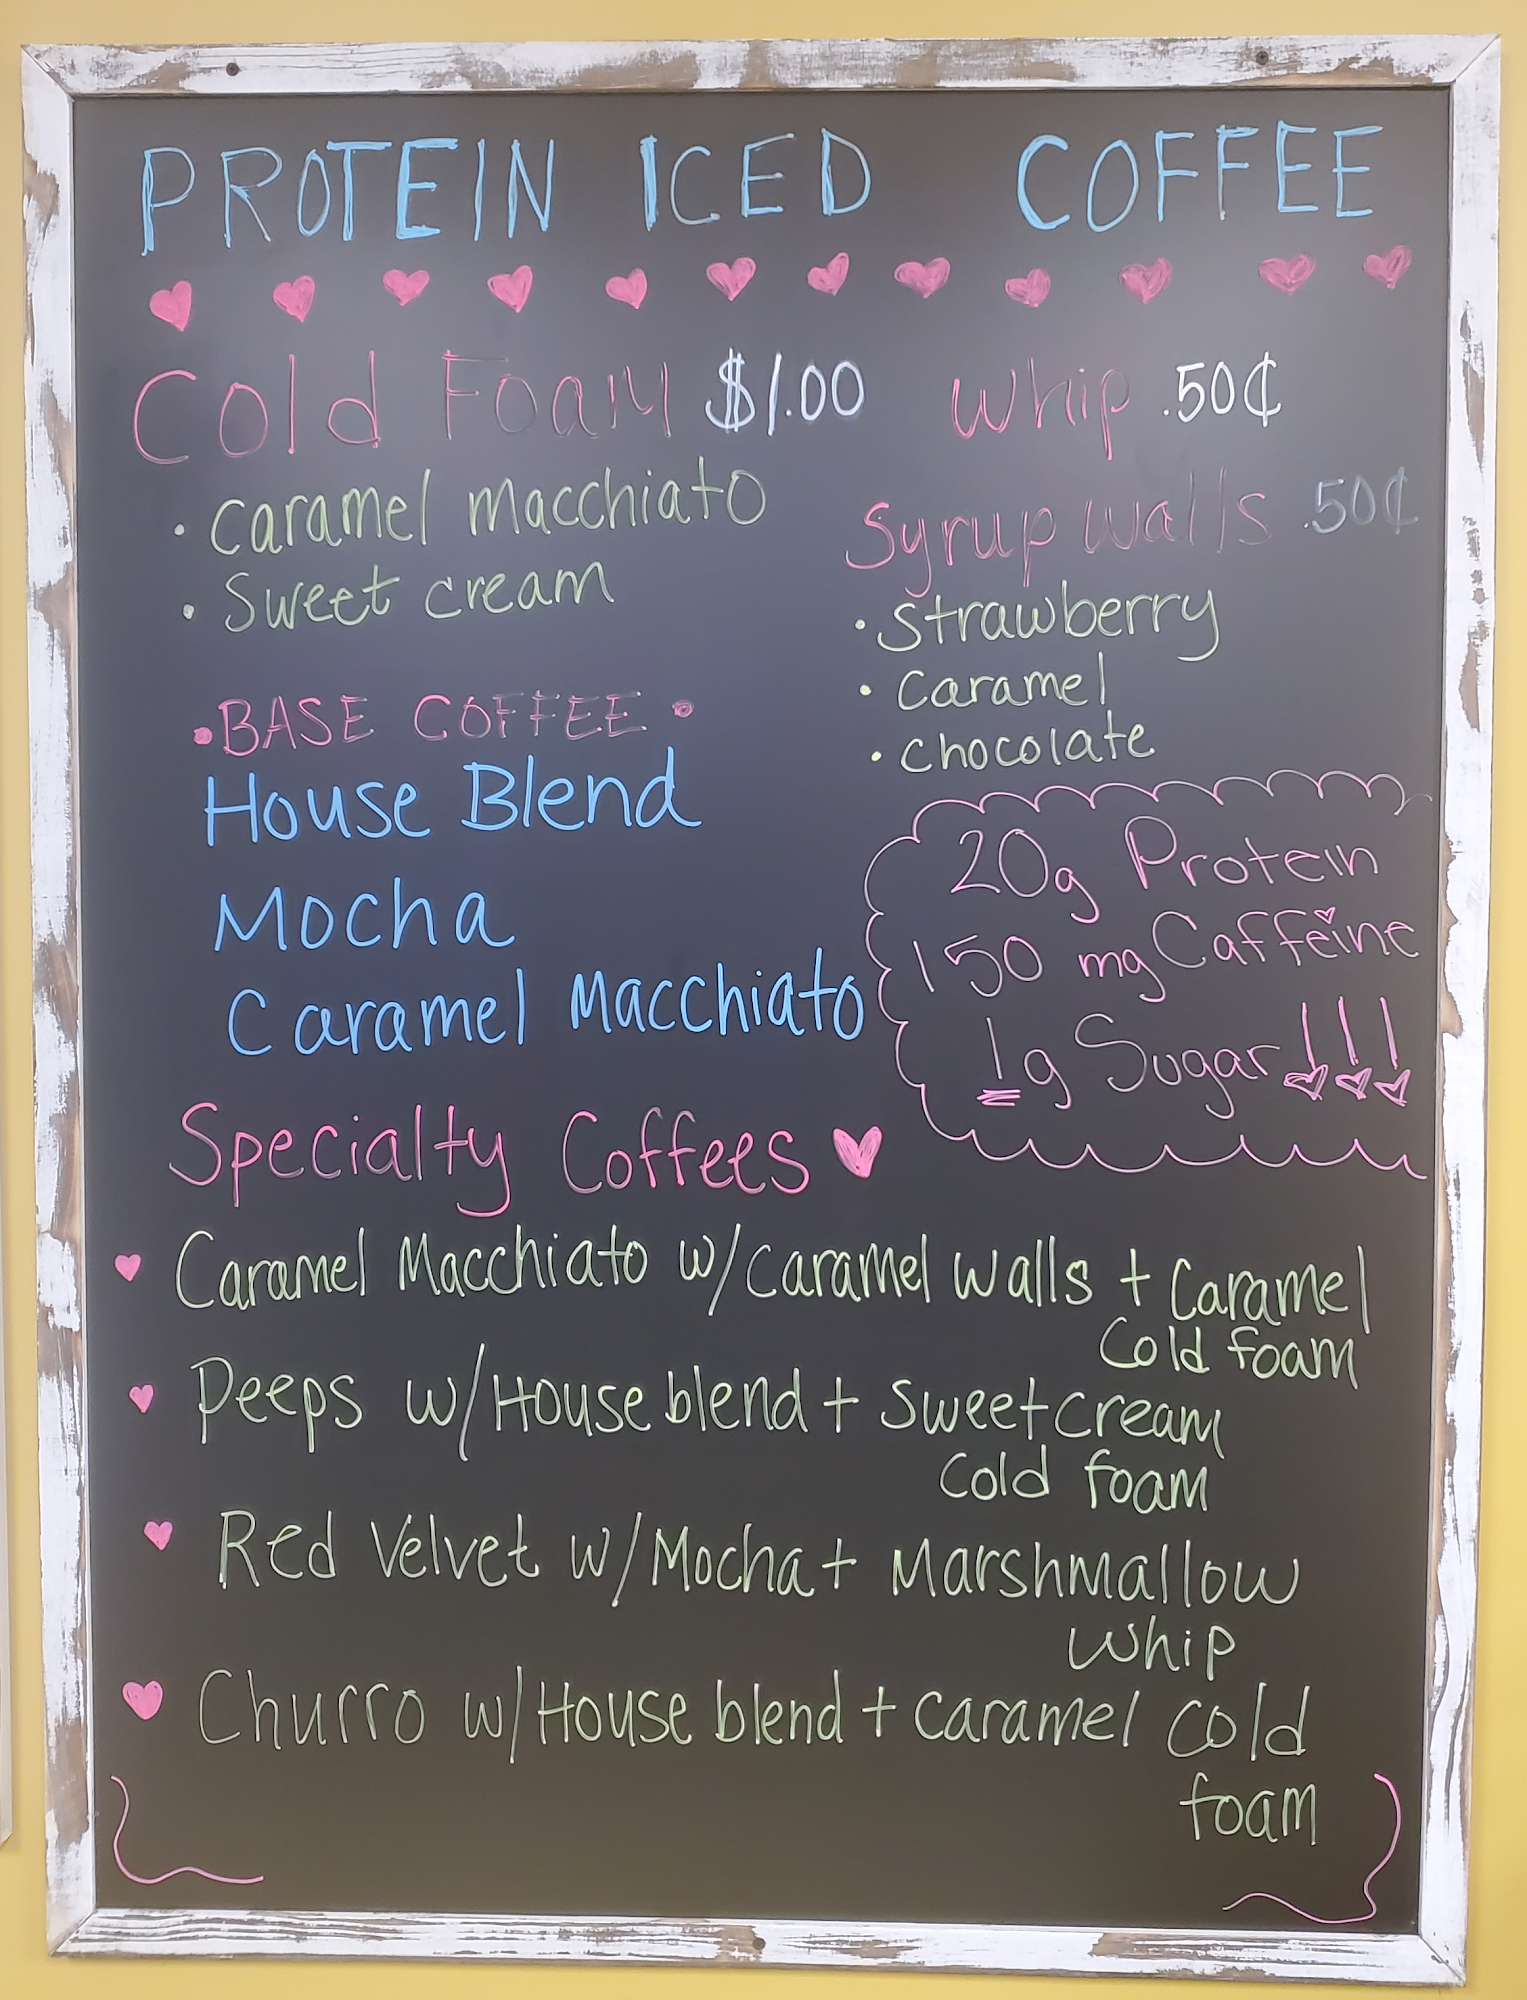 PROTEIN ICED COFFEE
Cold Foam $1.00
• Caramel Macchiato
• Sweet cream
Whip .50¢
Syrup walls .50¢
• Strawberry
• Caramel
• Chocolate
• BASE COFFEE •
House Blend
Mocha
Caramel Macchiato
20g Protein
150 mg Caffeine
1g Sugar!!!
Specialty Coffees
Caramel Macchiato w/Caramel walls + Caramel
Cold foam
Peeps w/House blend + Sweet Cream
Cold foam
Red Velvet w/Mocha + Marshmallow
whip
Churro w/House blend + Caramel Cold
foam